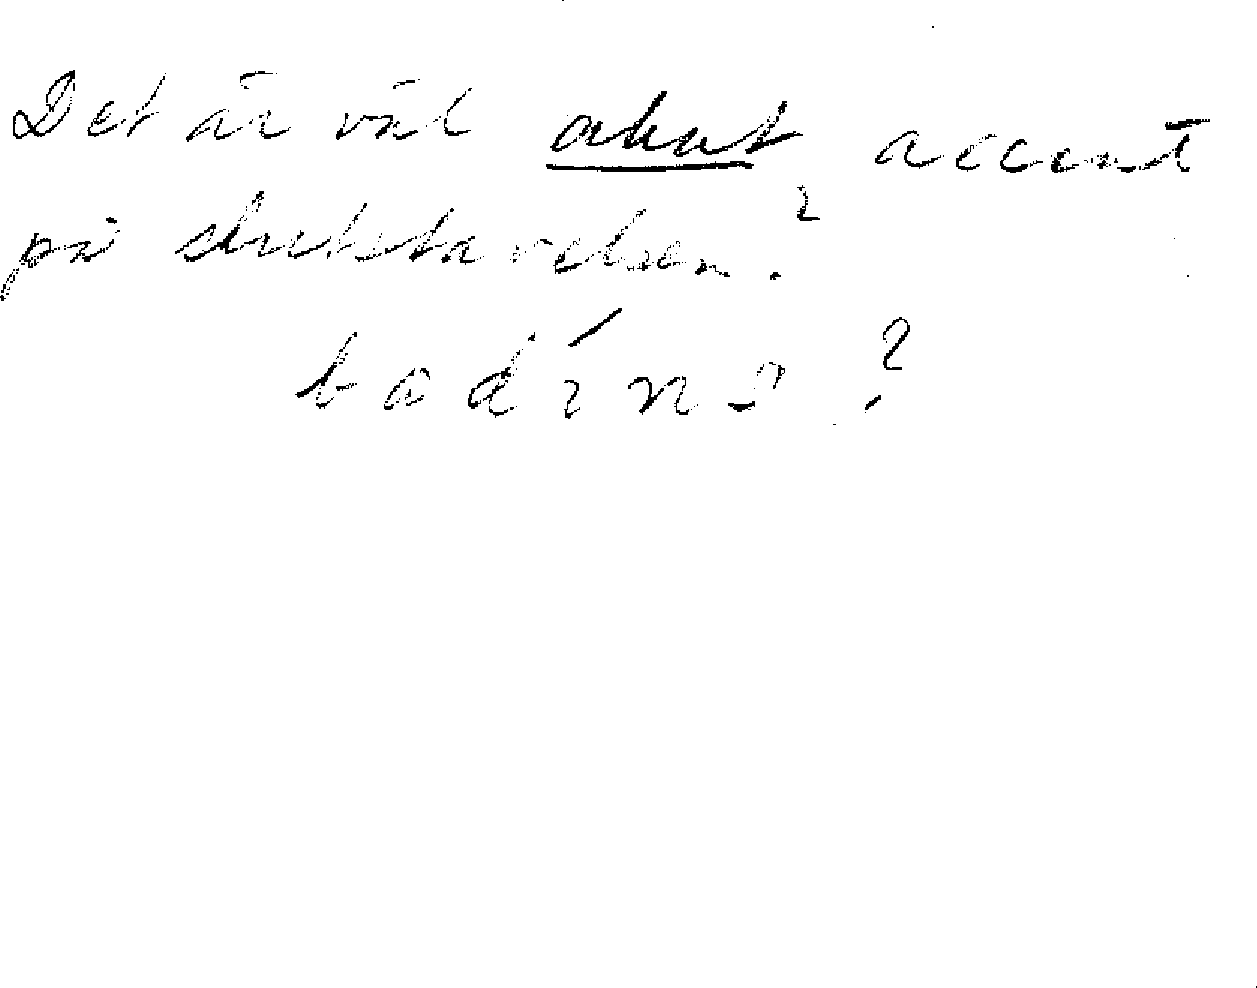 Det är väl akut accent
på slutstavelsen?
badíns?